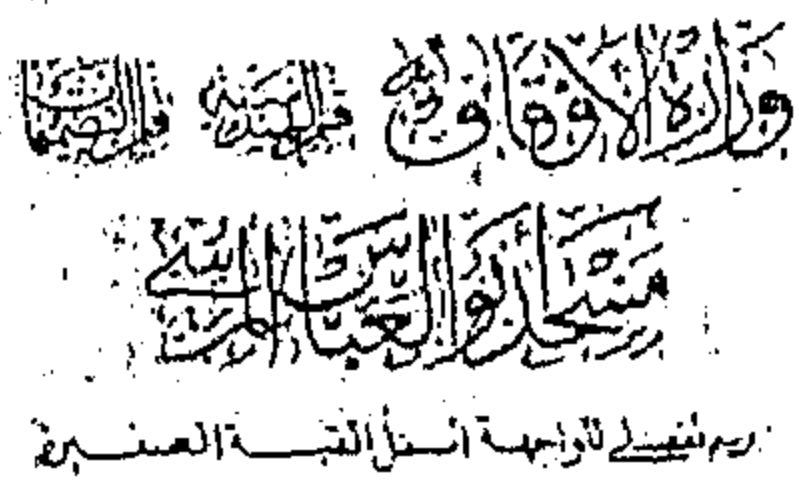 وزارة الاوقاف قسم الهندسة قلم التصميمات
مسجد أبو العباس المرسي
رسم تفصيلي للواجهة اسفل القبة الصغيرة